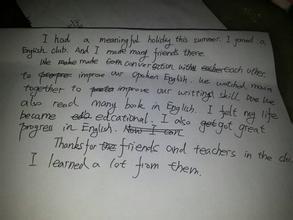 I had a meaningful holiday this summer. I joined a
English club. And I made many friends there.
We make conversation with each other
to improve our spoken English. We watched movie
together to improve our writing skill. We
also read many book in English. I felt my life
became educational. I also got great
progress in English.
Thanks for friends and teachers in the
I learned a lot from them.